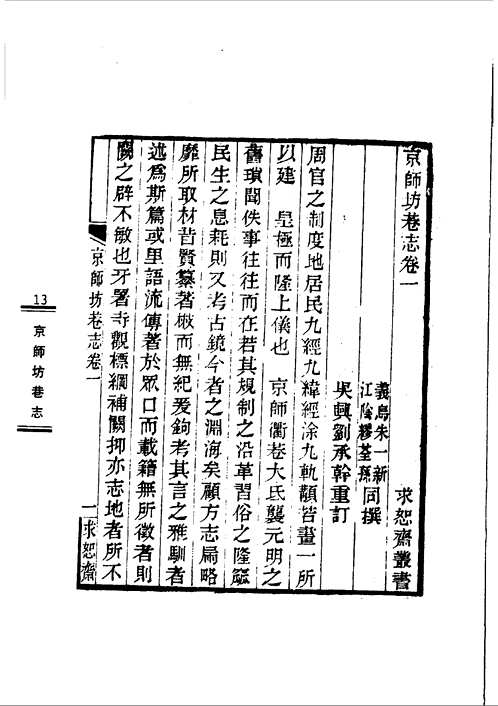 京師坊巷志卷一
求恕齋叢書
義烏朱一新
江陰繆荃孫
同撰
吳興劉承幹重訂
周官之制度地居民九經九緯經涂九軌顓皆畫一所
以建 皇極而隆上儀也 京師衢巷大氐襲元明之
舊瑣聞佚事往往而在若其規制之沿革習俗之隆窳
民生之息耗則又考古鏡今者之淵海矣顧方志扃略
靡所取材昔賢纂著橄而無紀爰鉤考其言之雅馴者
述爲斯篇或里語流傳著於眾口而載籍無所徵者則
闕之辟不敏也牙署寺觀標綱補闕抑亦志地者所不
京師坊巷志卷一
一
求恕齋
13
京師坊巷志